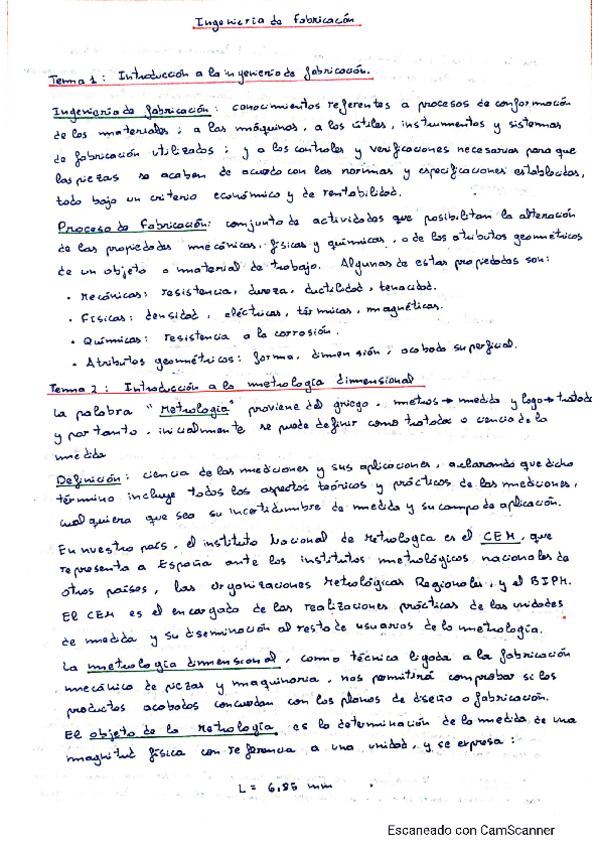 Ingeniería de Fabricación
Tema 1: Introducción a la ingeniería de fabricación.
Ingeniería de fabricación: conocimientos referentes a procesos de conformación
de los materiales; a las máquinas, a los útiles, instrumentos y sistemas
de fabricación utilizados; y a los controles y verificaciones necesarias para que
las piezas se acaben de acuerdo con las normas y especificaciones establecidas,
todo bajo un criterio económico y de rentabilidad.
Proceso de Fabricación: conjunto de actividades que posibilitan la alteración
de las propiedades mecánicas, físicas y químicas, o de los atributos geométricos
de un objeto o material de trabajo. Algunas de estas propiedades son:
• Mecánicas: resistencia, dureza, ductilidad, tenacidad.
• Físicas: densidad, eléctricas, térmicas, magnéticas.
• Químicas: resistencia a la corrosión.
• Atributos geométricos: forma, dimensión, acabado superficial.
Tema 2: Introducción a la metrología dimensional
La palabra "Metrología" proviene del griego. metros→ medida y logo→ tratado
y por tanto, inicialmente se puede definir como tratado o ciencia de la
medida
Definición: ciencia de las mediciones y sus aplicaciones, aclarando que dicho
término incluye todos los aspectos teóricos y prácticos de las mediciones,
cualquiera que sea su incertidumbre de medida y su campo de aplicación.
En nuestro país, el instituto Nacional de Metrología es el CEM, que
representa a España ante los institutos metrológicos nacionales de
otros países, las Organizaciones Metrológicas Regionales, y el BIPM.
El CEM es el encargado de las realizaciones prácticas de las unidades
de medida y su diseminación al resto de usuarios de la metrología.
La metrología dimensional, como técnica ligada a la fabricación
mecánica de piezas y maquinaria, nos permitirá comprobar si los
productos acabados concuerdan con los planos de diseño o fabricación.
El objeto de la Metrología es la determinación de la medida de una
magnitud física con referencia a una unidad, y se expresa:
L = 6,85 mm
Escaneado con CamScanner